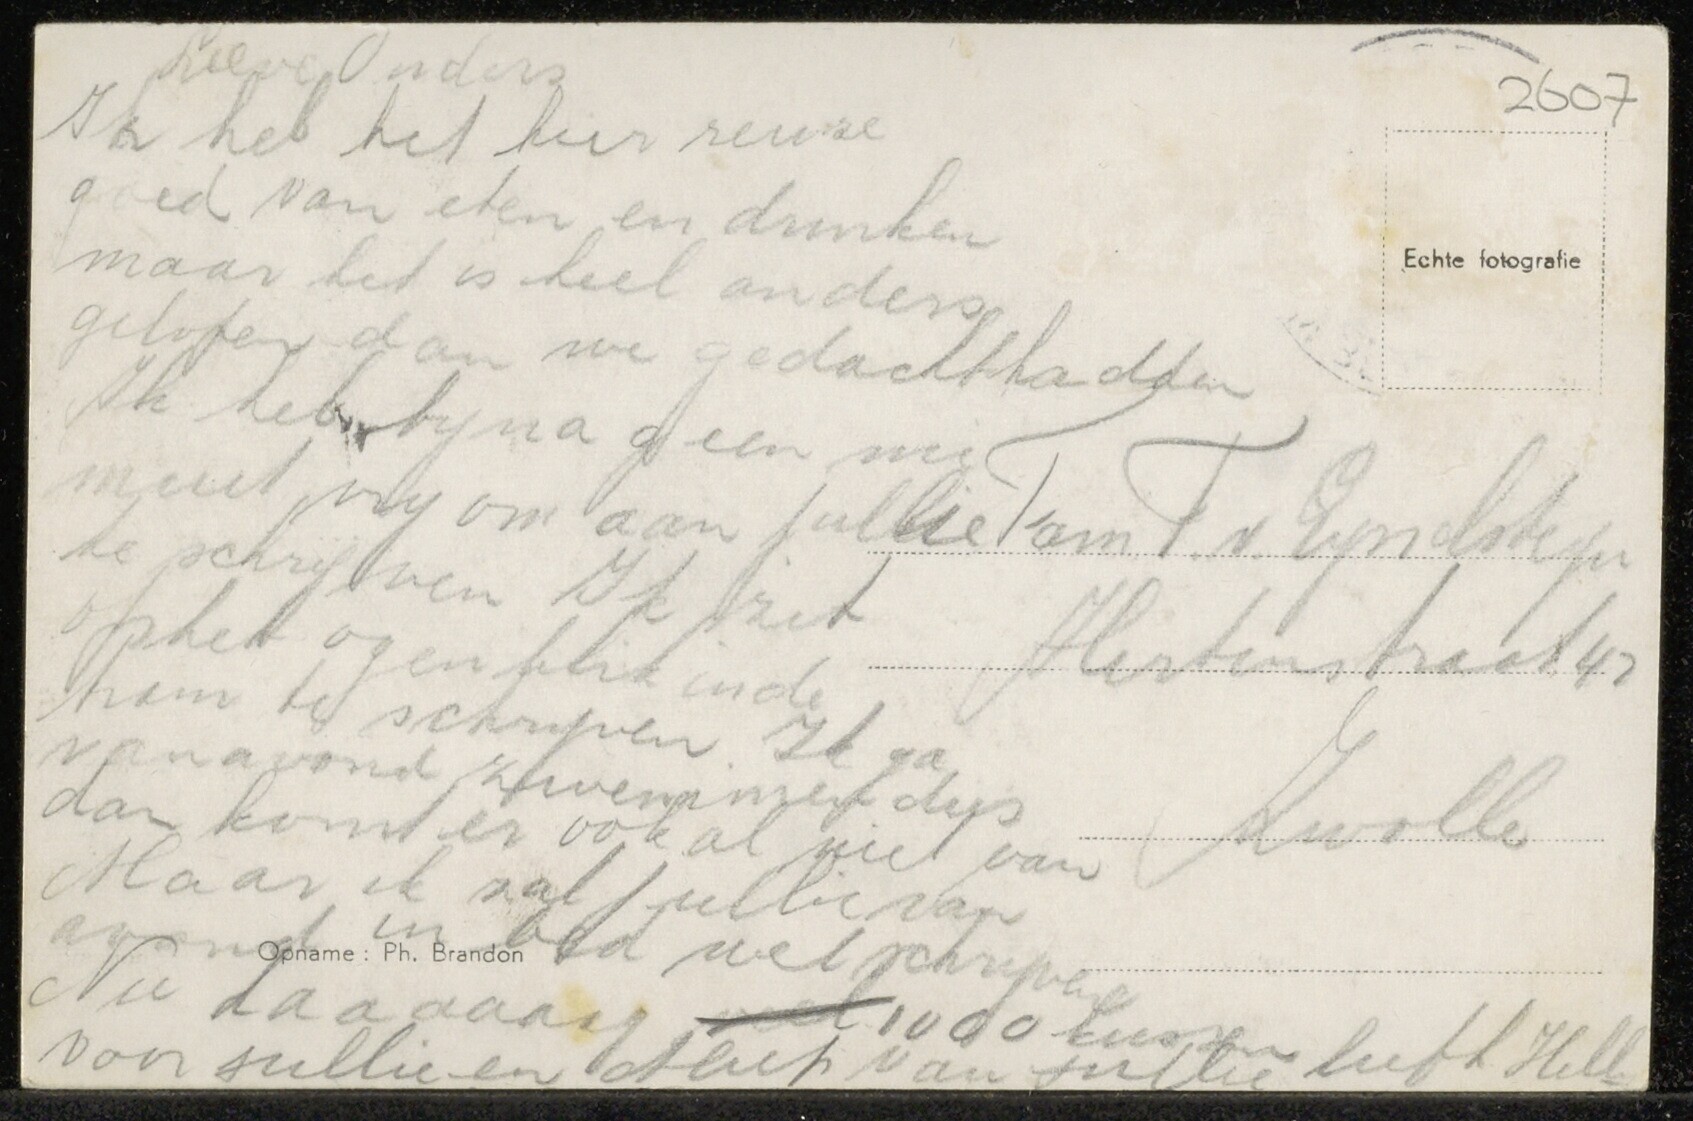 Lieve Ouders
Ik heb het hier reuze
goed van eten en drinken
maar het is heel anders
gelopen dan we gedacht hadden
Ik heb byna geen mi
nuut vry om aan jullie
te schrijven Ik zit
op het ogenblik in de
tram te schrijven Ik ga
vanavond zwemmen dus
dan komt er ook al niet van
Maar ik zal jullie van
avond in bed wel schrijven
Nu daaaaaag 1000 kussen
voor jullie en van jullie
2607
Echte fotografie
Fam T. v. Eyndsteyn
Hertenstraat 42
Zwolle
Opname: Ph. Brandon